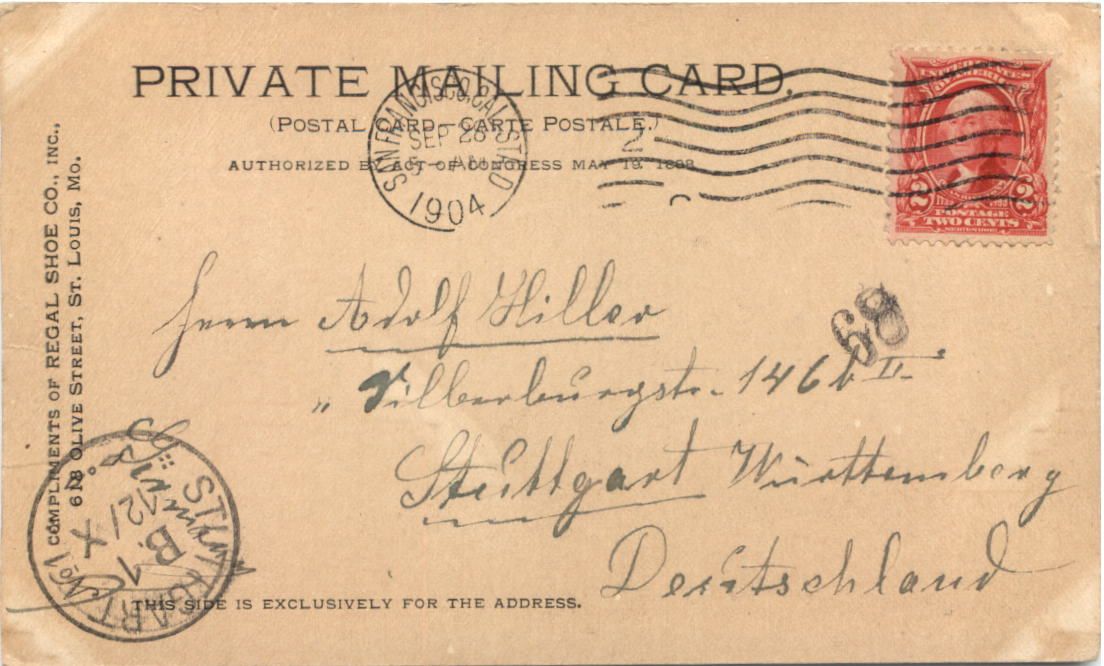 PRIVATE MAILING CARD.
(POSTAL CARD—CARTE POSTALE.)
AUTHORIZED BY ACT OF CONGRESS MAY 19. 1898.
SAN FRANCISCO, CAL. STA. D
SEP 28
5 AM
1904
2
UNITED STATES
OF AMERICA
2 2
POSTAGE
TWO CENTS
SERIES 1902
COMPLIMENTS OF REGAL SHOE CO., INC.,
618 OLIVE STREET, ST. LOUIS, MO.
Herrn Adolf Hiller
„ Silberburgstr. 146b II
68
Stuttgart Württemberg
Deutschland
STUTTGART No 1
12/X
B. 1
THIS SIDE IS EXCLUSIVELY FOR THE ADDRESS.